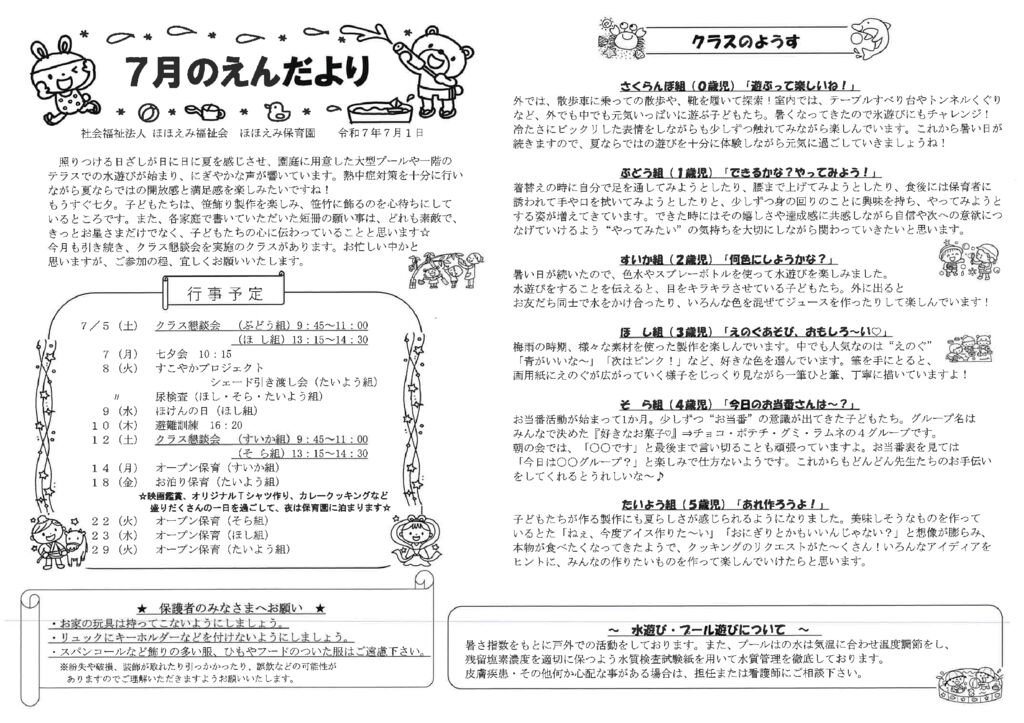 ７月のえんだより
社会福祉法人 ほほえみ福祉会 ほほえみ保育園 令和７年７月１日
照りつける日ざしが日に日に夏を感じさせ、園庭に用意した大型プールや一階の
テラスでの水遊びが始まり、にぎやかな声が響いています。熱中症対策を十分に行い
ながら夏ならではの開放感と満足感を楽しみたいですね！
もうすぐ七夕。子どもたちは、笹飾り製作を楽しみ、笹竹に飾るのを心待ちにして
いるところです。また、各家庭で書いていただいた短冊の願い事は、どれも素敵で、
きっとお星さまだけでなく、子どもたちの心に伝わっていることと思います☆
今月も引き続き、クラス懇談会を実施のクラスがあります。お忙しい中かと
思いますが、ご参加の程、宜しくお願いいたします。
行事予定
７／５（土） クラス懇談会 （ぶどう組）９：４５～１１：００
（ほ し組）１３：１５～１４：３０
７（月） 七夕会 １０：１５
８（火） すこやかプロジェクト
シェード引き渡し会（たいよう組）
〃 尿検査（ほし・そら・たいよう組）
９（水） ほけんの日（ほし組）
１０（木） 避難訓練 １６：２０
１２（土） クラス懇談会 （すいか組）９：４５～１１：００
（そ ら組）１３：１５～１４：３０
１４（月） オープン保育（すいか組）
１８（金） お泊り保育（たいよう組）
☆映画鑑賞、オリジナルＴシャツ作り、カレークッキングなど
盛りだくさんの一日を過ごして、夜は保育園に泊まります☆
２２（火） オープン保育（そら組）
２３（水） オープン保育（ほし組）
２９（火） オープン保育（たいよう組）
★ 保護者のみなさまへお願い ★
・お家の玩具は持ってこないようにしましょう。
・リュックにキーホルダーなどを付けないようにしましょう。
・スパンコールなど飾りの多い服、ひもやフードのついた服はご遠慮下さい。
※紛失や破損、装飾が取れたり引っかかったり、誤飲などの可能性が
ありますのでご理解いただきますようお願いいたします。
クラスのようす
さくらんぼ組（０歳児）「遊ぶって楽しいね！」
外では、散歩車に乗っての散歩や、靴を履いて探索！室内では、テーブルすべり台やトンネルくぐり
など、外でも中でも元気いっぱいに遊ぶ子どもたち。暑くなってきたので水遊びにもチャレンジ！
冷たさにビックリした表情をしながらも少しずつ触れてみながら楽しんでいます。これから暑い日が
続きますので、夏ならではの遊びを十分に体験しながら元気に過ごしていきましょうね！
ぶどう組（１歳児）「できるかな？やってみよう！」
着替えの時に自分で足を通してみようとしたり、腰まで上げてみようとしたり、食後には保育者に
誘われて手や口を拭いてみようとしたりと、少しずつ身の回りのことに興味を持ち、やってみようと
する姿が増えてきています。できた時にはその嬉しさや達成感に共感しながら自信や次への意欲につ
なげていけるよう“やってみたい”の気持ちを大切にしながら関わっていきたいと思います。
すいか組（２歳児）「何色にしようかな？」
暑い日が続いたので、色水やスプレーボトルを使って水遊びを楽しみました。
水遊びをすることを伝えると、目をキラキラさせている子どもたち。外に出ると
お友だち同士で水をかけ合ったり、いろんな色を混ぜてジュースを作ったりして楽しんでいます！
ほ し組（３歳児）「えのぐあそび、おもしろ～い♡」
梅雨の時期、様々な素材を使った製作を楽しんでいます。中でも人気なのは“えのぐ”
「青がいいな～」「次はピンク！」など、好きな色を選んでいます。筆を手にとると、
画用紙にえのぐが広がっていく様子をじっくり見ながら一筆ひと筆、丁寧に描いていますよ！
そ ら組（４歳児）「今日のお当番さんは～？」
お当番活動が始まって１か月。少しずつ“お当番”の意識が出てきた子どもたち。グループ名は
みんなで決めた『好きなお菓子♡』⇒チョコ・ポテチ・グミ・ラムネの４グループです。
朝の会では、「〇〇です」と最後まで言い切ることも頑張っていますよ。お当番表を見ては
「今日は〇〇グループ？」と楽しみで仕方ないようです。これからもどんどん先生たちのお手伝い
をしてくれるとうれしいな～♪
たいよう組（５歳児）「あれ作ろうよ！」
子どもたちが作る製作にも夏らしさが感じられるようになりました。美味しそうなものを作って
いるとた「ねぇ、今度アイス作りた～い」「おにぎりとかもいいんじゃない？」と想像が膨らみ、
本物が食べたくなってきたようで、クッキングのリクエストがた～くさん！いろんなアイディアを
ヒントに、みんなの作りたいものを作って楽しんでいけたらと思います。
～ 水遊び・プール遊びについて ～
暑さ指数をもとに戸外での活動をしております。また、プールの水は気温に合わせ温度調節をし、
残留塩素濃度を適切に保つよう水質検査試験紙を用いて水質管理を徹底しております。
皮膚疾患・その他何か心配な事がある場合は、担任または看護師にご相談下さい。